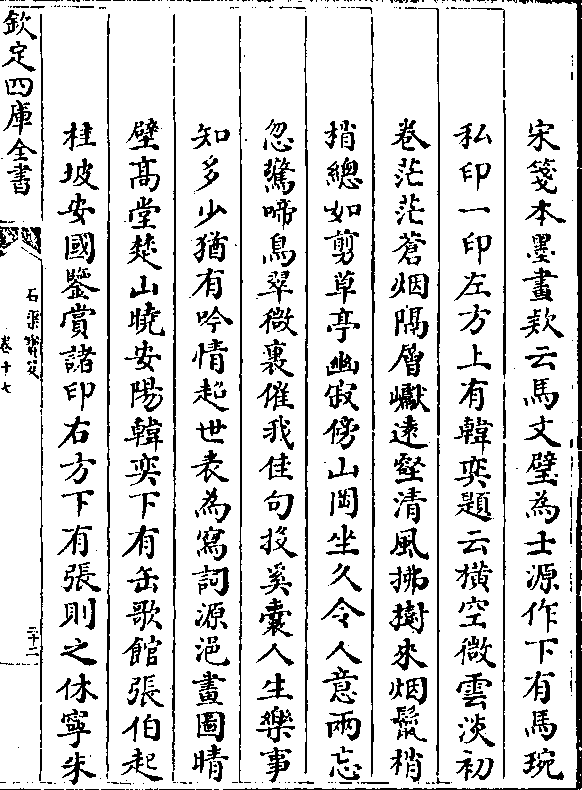 宋箋本墨畫欵云馬文璧為士源作下有馬琬
私印一印左方上有韓奕題云橫空微雲淡初
卷茫茫蒼烟隔層巘遠壑清風拂樹來烟鬟梢
梢總如剪草亭幽寂傍山岡坐久令人意兩忘
忽驚啼鳥翠微裏催我佳句投奚囊人生樂事
知多少猶有吟情起世表為寫詞源浥畫圖晴
壁高堂楚山曉安陽韓奕下有缶歌館張伯起
桂坡安國鑒賞諸印右方下有張則之休寧朱
欽定四庫全書
石渠寳笈
卷十七
三十二